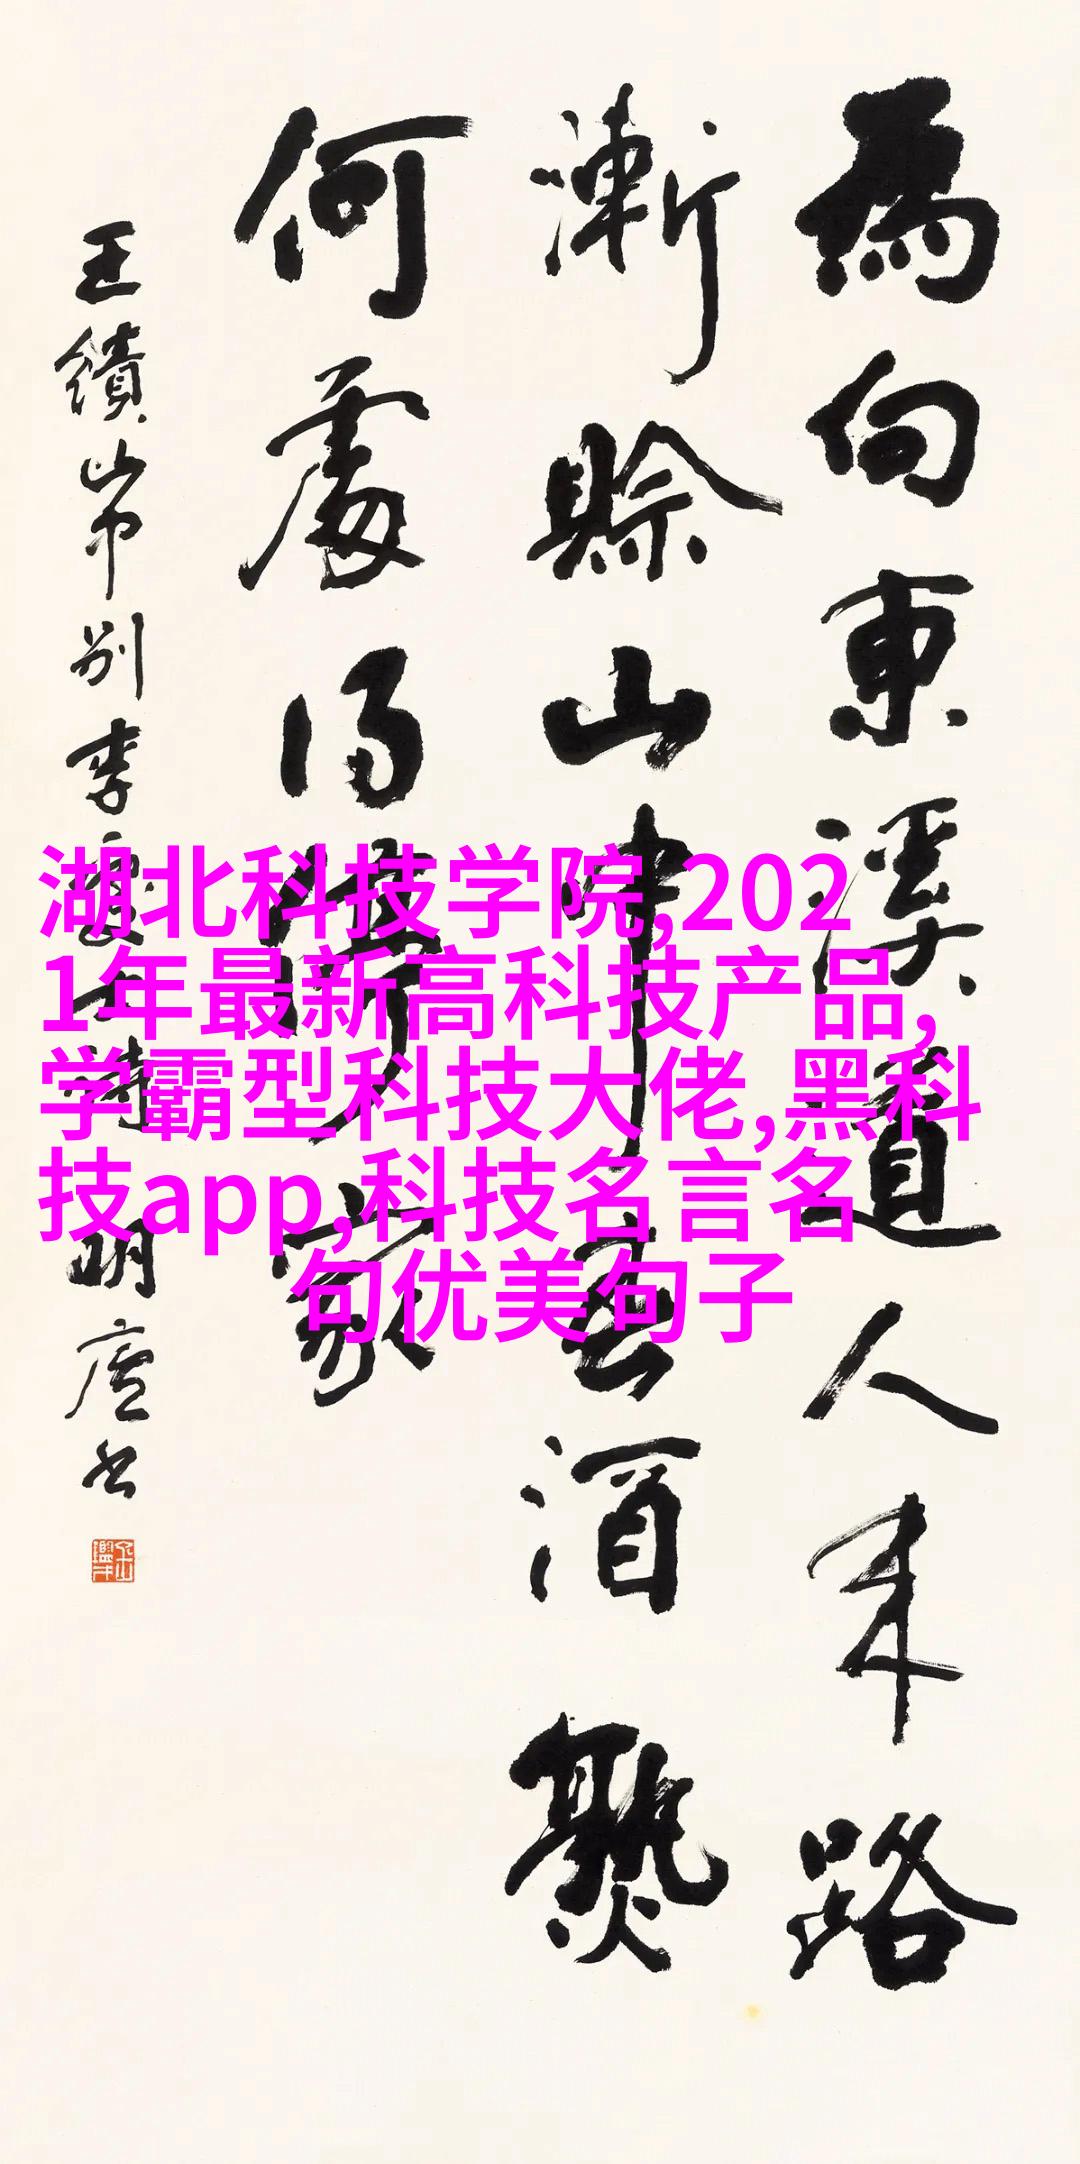 為向東溪道人来路
漸賒山中春酒熟
何處得停家
王績山中別李處士詩 明廬书
湖北科技学院,202
1年最新高科技产品,
学霸型科技大佬,黑科
技app,科技名言名
句优美句子